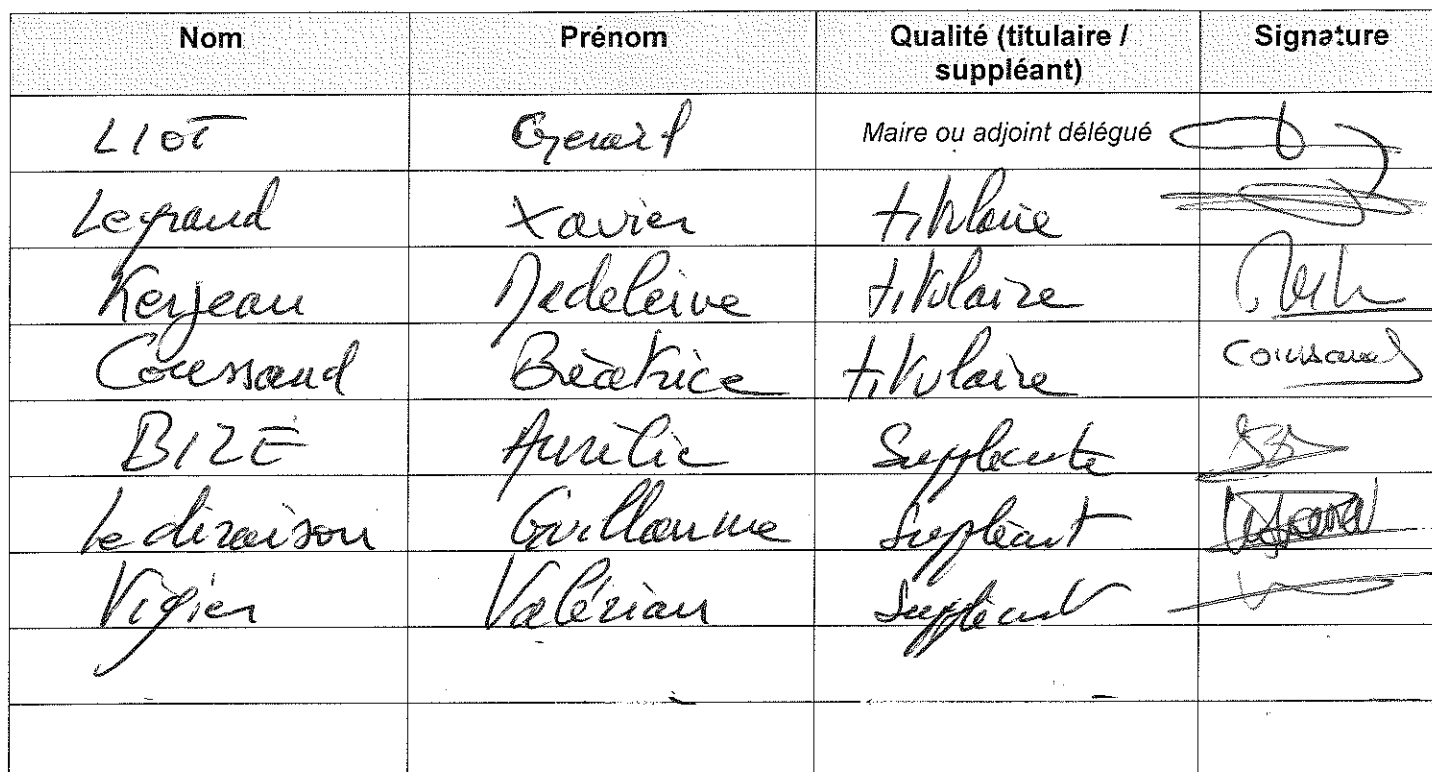 Nom Prénom Qualité (titulaire / suppléant) Signature
LIOT Gerard Maire ou adjoint délégué
Legrand Xavier titulaire
Kerjean Madeleine titulaire
Coussaud Béatrice titulaire Coussaud
BIZE Aurélie Suppléante
Le diraison Guillaume Suppléant
Vigier Valérian Suppléant